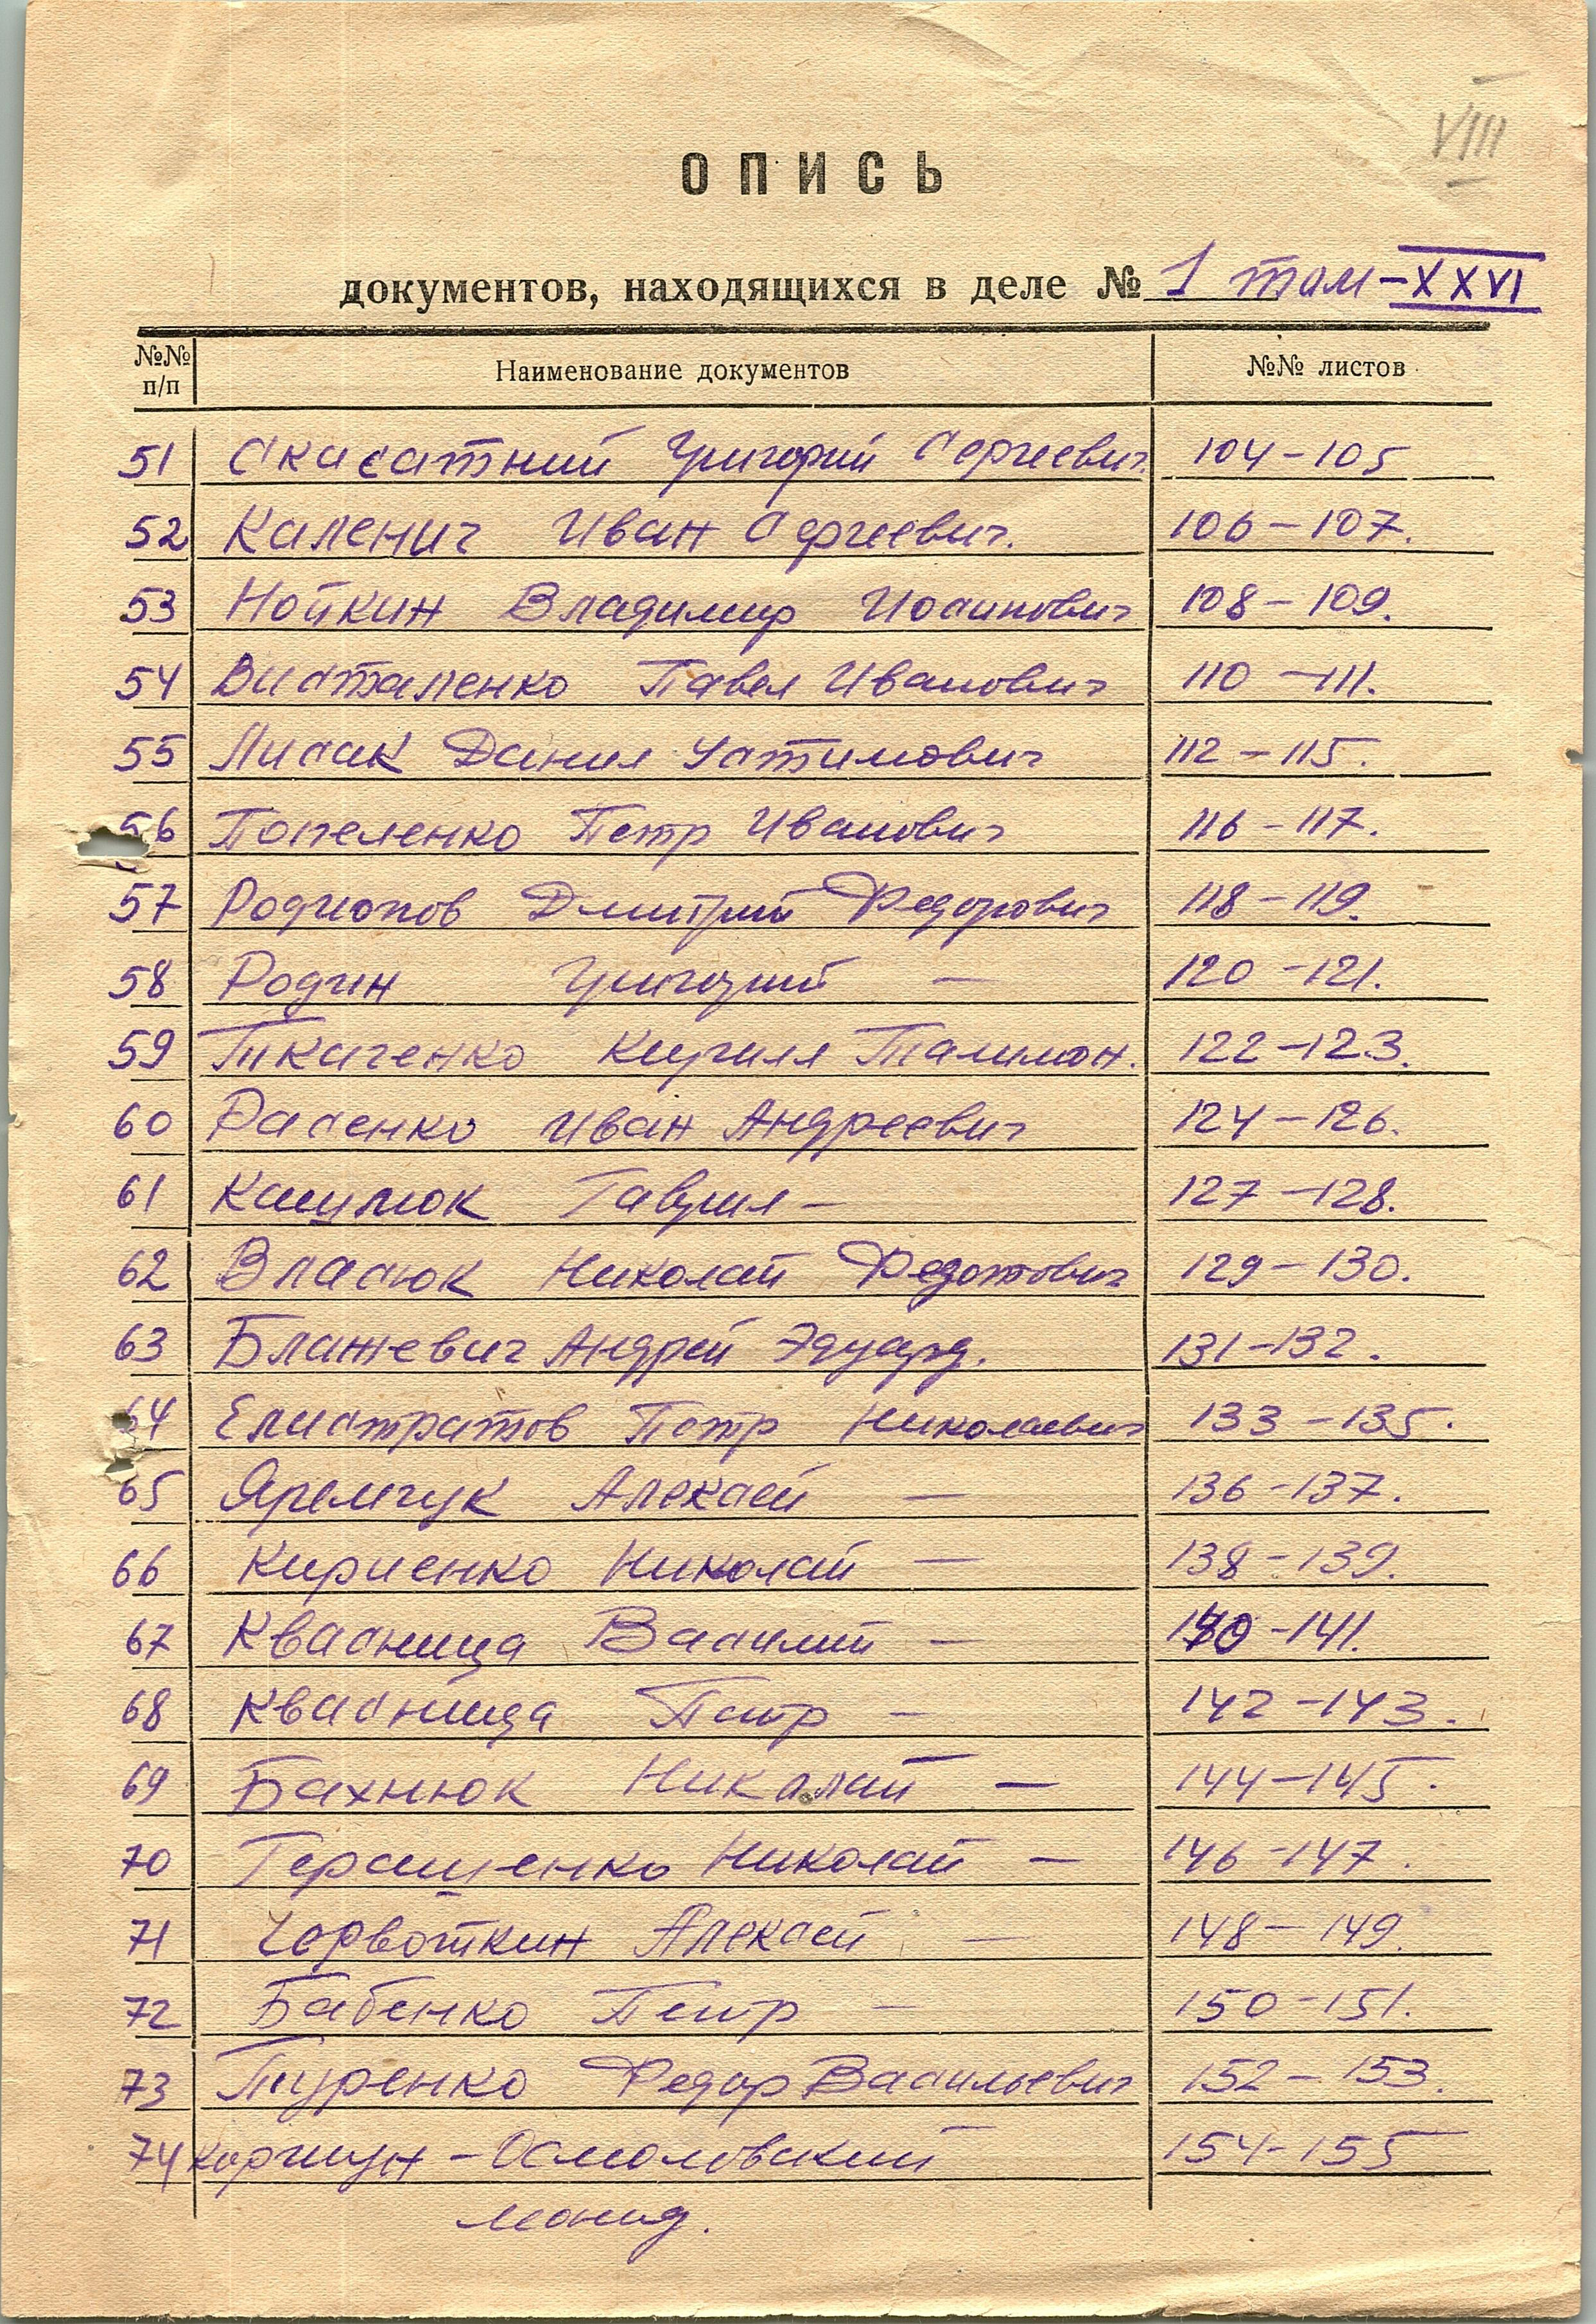 VIII
ОПИСЬ
документов, находящихся в деле № 1 том-XXVI
№№ п/п Наименование документов №№ листов
51 Скасатний Григорий Сергеевич 104-105
52 Каленич Иван Сергеевич. 106-107.
53 Нойкин Владимир Иосипович 108-109.
54 Висталенко Павел Иванович 110-111.
55 Лисак Данил 112-115.
56 Попеленко Петр Иванович 116-117.
57 Родионов Дмитрий Федорович 118-119.
58 Родин Григорий — 120-121.
59 Ткаченко Кирилл Талимон. 122-123.
60 Расенко Иван Андреевич 124-126.
61 Кашулюк Гаврил — 127-128.
62 Власюк Николай Федотович 129-130.
63 Блажевич Андрей Эдуард. 131-132.
64 Елистратов Петр Николаевич 133-135.
65 Яремчук Алексей — 136-137.
66 Кириенко Николай — 138-139.
67 Квасница Василий — 140-141.
68 Квасница Петр — 142-143.
69 Бахнюк Николай — 144-145.
70 Геращенко Николай — 146-147.
71 Червоткин Алексей — 148-149.
72 Бабенко Петр — 150-151.
73 Туренко Федор Васильевич 152-153.
74 Коршун-Осмоловский 154-155
Леонид.